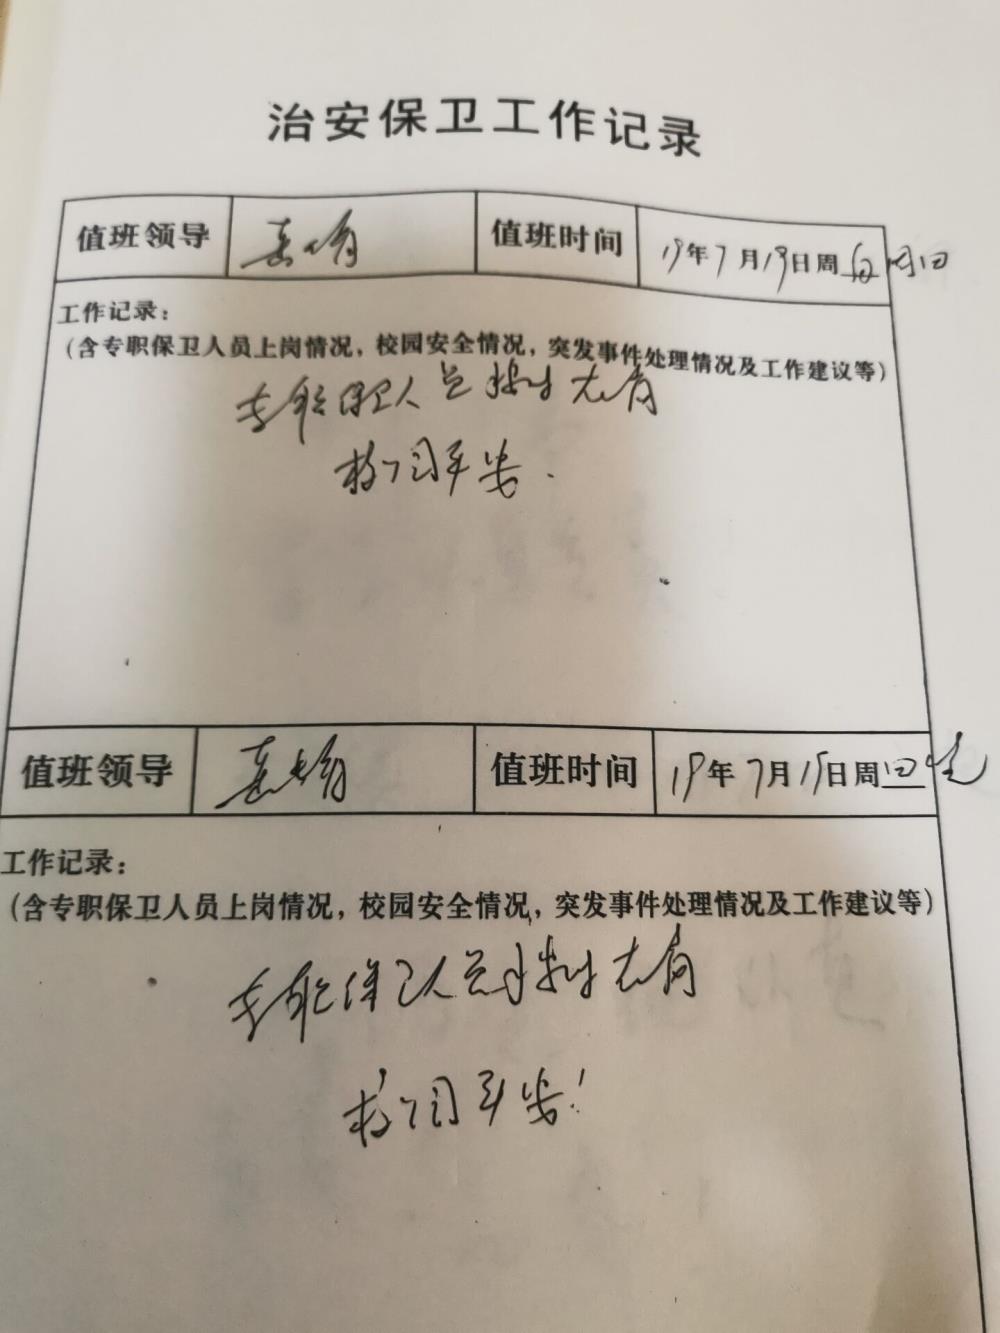 治安保卫工作记录
值班领导 值班时间 19年7月19日周
工作记录：
（含专职保卫人员上岗情况，校园安全情况，突发事件处理情况及工作建议等）
专职保卫人员
校园平安.
值班领导 值班时间 19年7月15日周四
工作记录：
（含专职保卫人员上岗情况，校园安全情况，突发事件处理情况及工作建议等）
专职保卫人员
校园平安!